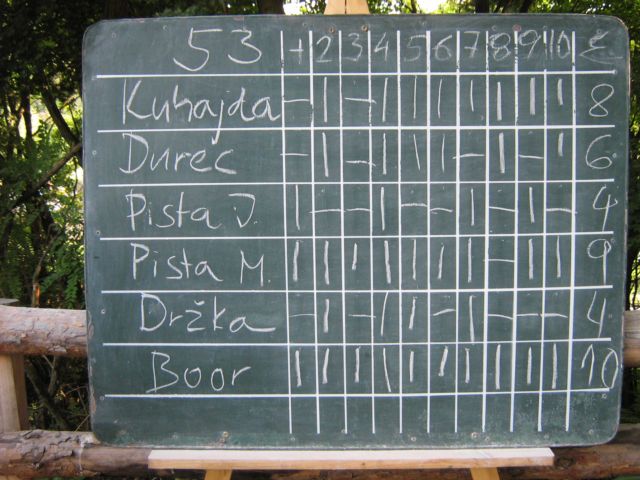 53 1 2 3 4 5 6 7 8 9 10 Σ
Kuhajda – | – | | | | | | | 8
Durec – | – | | | – | – | 6
Pista J. | – – | – – | – | – 4
Pista M. | | | | | | | – | | 9
Držka – | – | | – | – – – 4
Boor | | | | | | | | | | 10